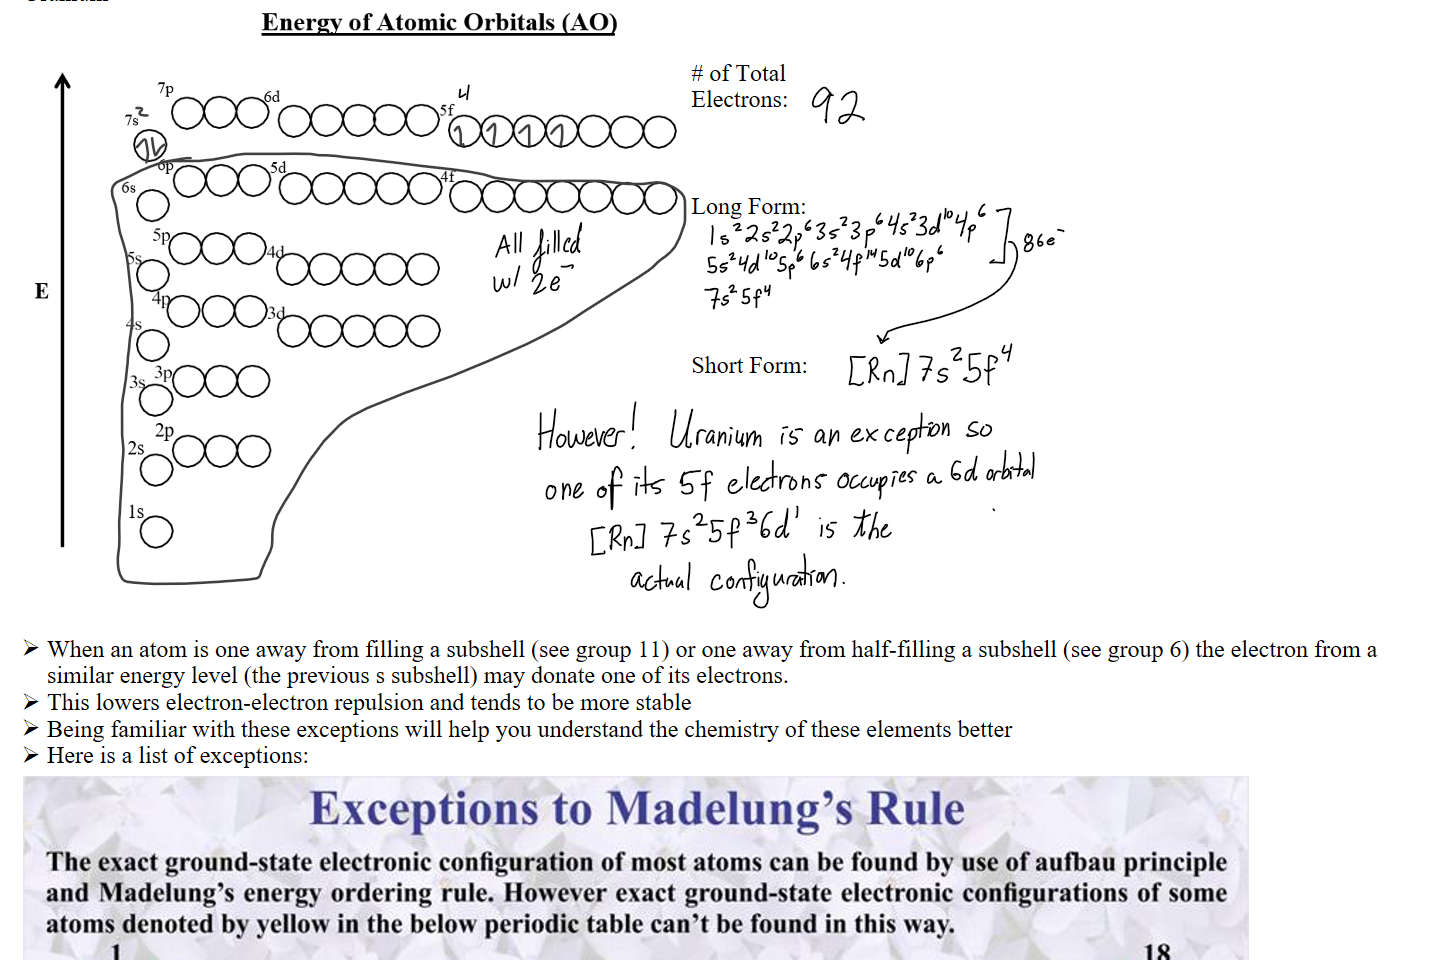 Energy of Atomic Orbitals (AO)
# of Total
Electrons: 92
7p
6d
4
5f
7s²
6p
5d
4f
6s
Long Form:
1s²2s²2p⁶3s²3p⁶4s²3d¹⁰4p⁶
5s²4d¹⁰5p⁶6s²4f¹⁴5d¹⁰6p⁶
7s²5f⁴
86e⁻
5p
5s
4d
All filled
w/ 2e⁻
E
4p
4s
3d
Short Form: [Rn] 7s²5f⁴
3s
3p
2p
2s
1s
However! Uranium is an exception so
one of its 5f electrons occupies a 6d orbital
[Rn] 7s²5f³6d¹ is the
actual configuration.
➢ When an atom is one away from filling a subshell (see group 11) or one away from half-filling a subshell (see group 6) the electron from a
similar energy level (the previous s subshell) may donate one of its electrons.
➢ This lowers electron-electron repulsion and tends to be more stable
➢ Being familiar with these exceptions will help you understand the chemistry of these elements better
➢ Here is a list of exceptions:
Exceptions to Madelung's Rule
The exact ground-state electronic configuration of most atoms can be found by use of aufbau principle
and Madelung's energy ordering rule. However exact ground-state electronic configurations of some
atoms denoted by yellow in the below periodic table can't be found in this way.
1
18